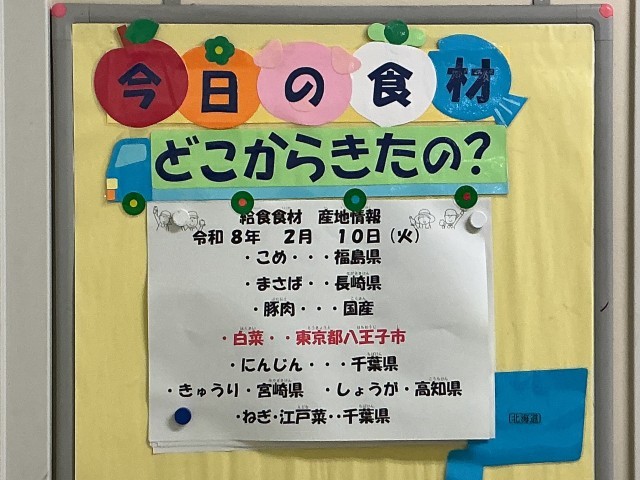 今日の食材
どこからきたの?
給食食材 産地情報
令和 8年 2月 10日(火)
・こめ・・・福島県
・まさば・・長崎県
・豚肉・・・国産
・白菜・・東京都八王子市
・にんじん・・・千葉県
・きゅうり・宮崎県 ・しょうが・高知県
・ねぎ・江戸菜・・千葉県
北海道